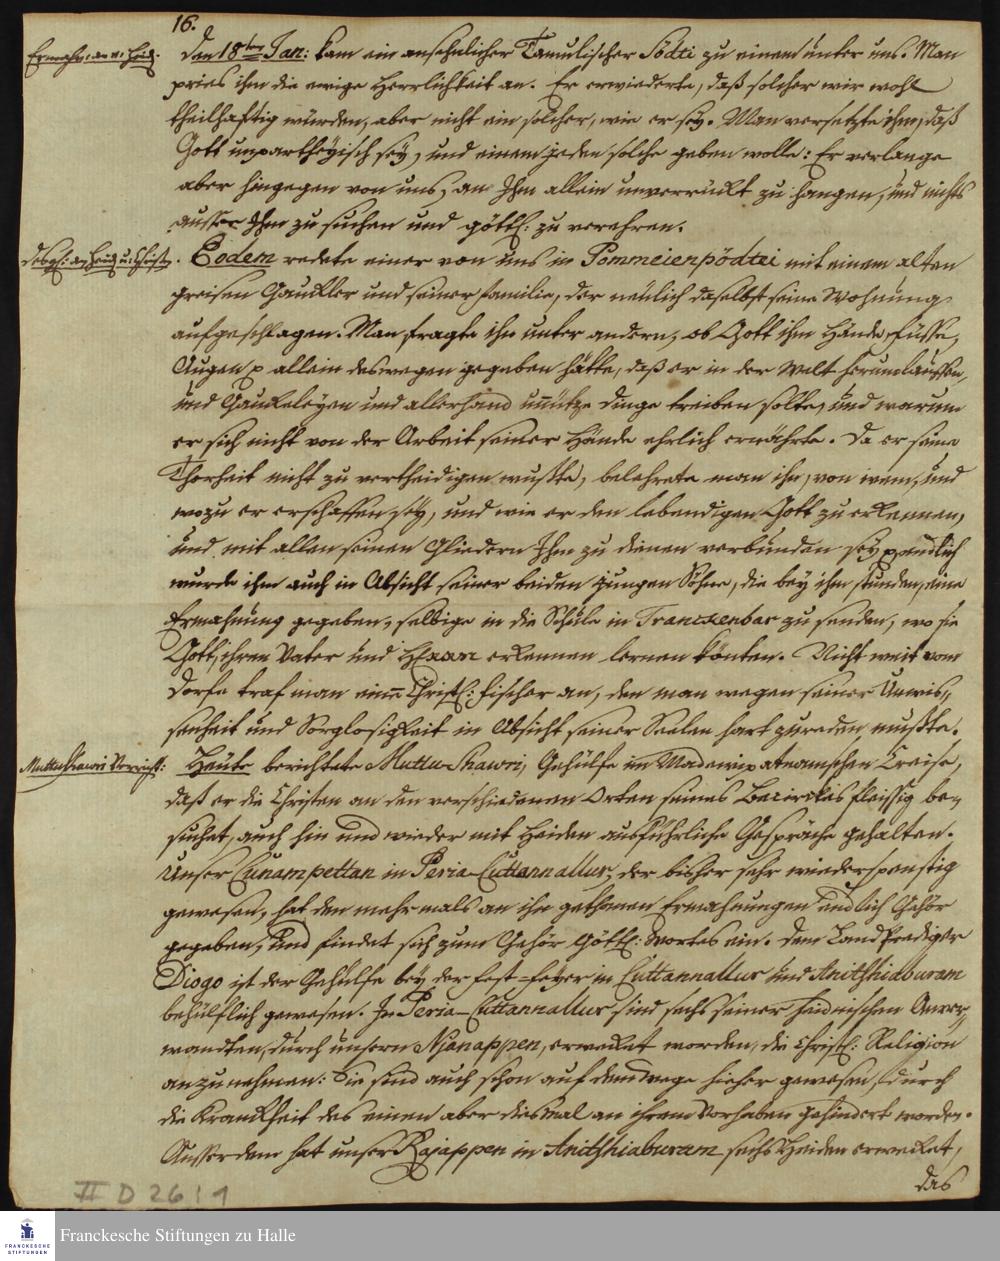 16.
Ermahn: an ei: Heid:
Den 18ten Jan: kam ein ansehnlicher Tamulischer Södti zu einem unter uns. Man
pries ihm die ewige Herrlichkeit an. Er erwiederte, daß solcher wir wohl
theilhaftig würden, aber nicht ein solcher, wie er sey. Man versetzte ihm, daß
Gott unpartheyisch sey, und einem jeden solche geben wolle: Er verlange
aber hingegen von uns, an Ihm allein unverrückt zu hangen, und nichts
ausser Ihm zu suchen und göttl: zu verehren.
desgl: an Heid: u: Christen.
Eodem redete einer von uns in Pommeienpödtei mit einem alten
greisen Gauckler und seiner Familie, der neulich daselbst seine Wohnung
aufgeschlagen. Man fragte ihn unter andern, ob Gott ihm Hände, Füsse,
Augen p allein deswegen gegeben hätte, daß er in der Welt herumlauffen,
und Gaukeleyen und allerhand unnütze Dinge treiben solte, und warum
er sich nicht von der Arbeit seiner Hände ehrlich ernährte. Da er seine
Thorheit nicht zu vertheidigen wußte, belehrete man ihn, von wem, und
wozu er erschaffen sey, und wie er den lebendigen Gott zu erkennen,
und mit allen seinen Gliedern Ihm zu dienen verbunden sey p endlich
wurde ihm auch in Absicht seiner beiden jungen Söhne, die bey ihm stunden, eine
Ermahnung gegeben, selbige in die Schule in Tranckenbar zu senden, wo sie
Gott, ihren Vater und HErrn erkennen lernen könten. Nicht weit vom
Dorfe traf man einen Christl: Fischer an, dem man wegen seiner Unwis„
senheit und Sorglosigkeit in Absicht seiner Seelen hart zureden mußte.
Muttushawri Verricht:
Heute berichtete Muttu-Shawri, Gehülfe im Madewipatnamschen Creise,
daß er die Christen an den verschiedenen Orten seines Bezirckes fleissig be„
suchet, auch hin und wieder mit Heiden ausführliche Gespräche gehalten.
Unser Cunampettan in Peria-Cuttannallur, der bisher sehr wiederspenstig
gewesen, hat den mehrmals an ihn gethanen Ermahnungen endlich Gehör
gegeben, und findet sich zum Gehör Göttl: Wortes ein. Dem Landprediger
Diogo ist der Gehülfe bey der Fest-Feyer in Cuttannallur und Anitshiaburam
behülflich gewesen. In Peria-Cuttannallur sind sechs seiner heidnischen Anver„
wandten, durch unsern Njanappen, erwecket worden, die Christl: Religion
anzunehmen: Sie sind auch schon auf dem Wege hieher gewesen, durch
die Kranckheit des einen aber diesmal an ihrem Vorhaben gehindert worden.
Ausserdem hat unser Rajappen in Anitshiaburam sechs Heiden erwecket,
das
II D 26:1
FRANCKESCHE
STIFTUNGEN
Franckesche Stiftungen zu Halle